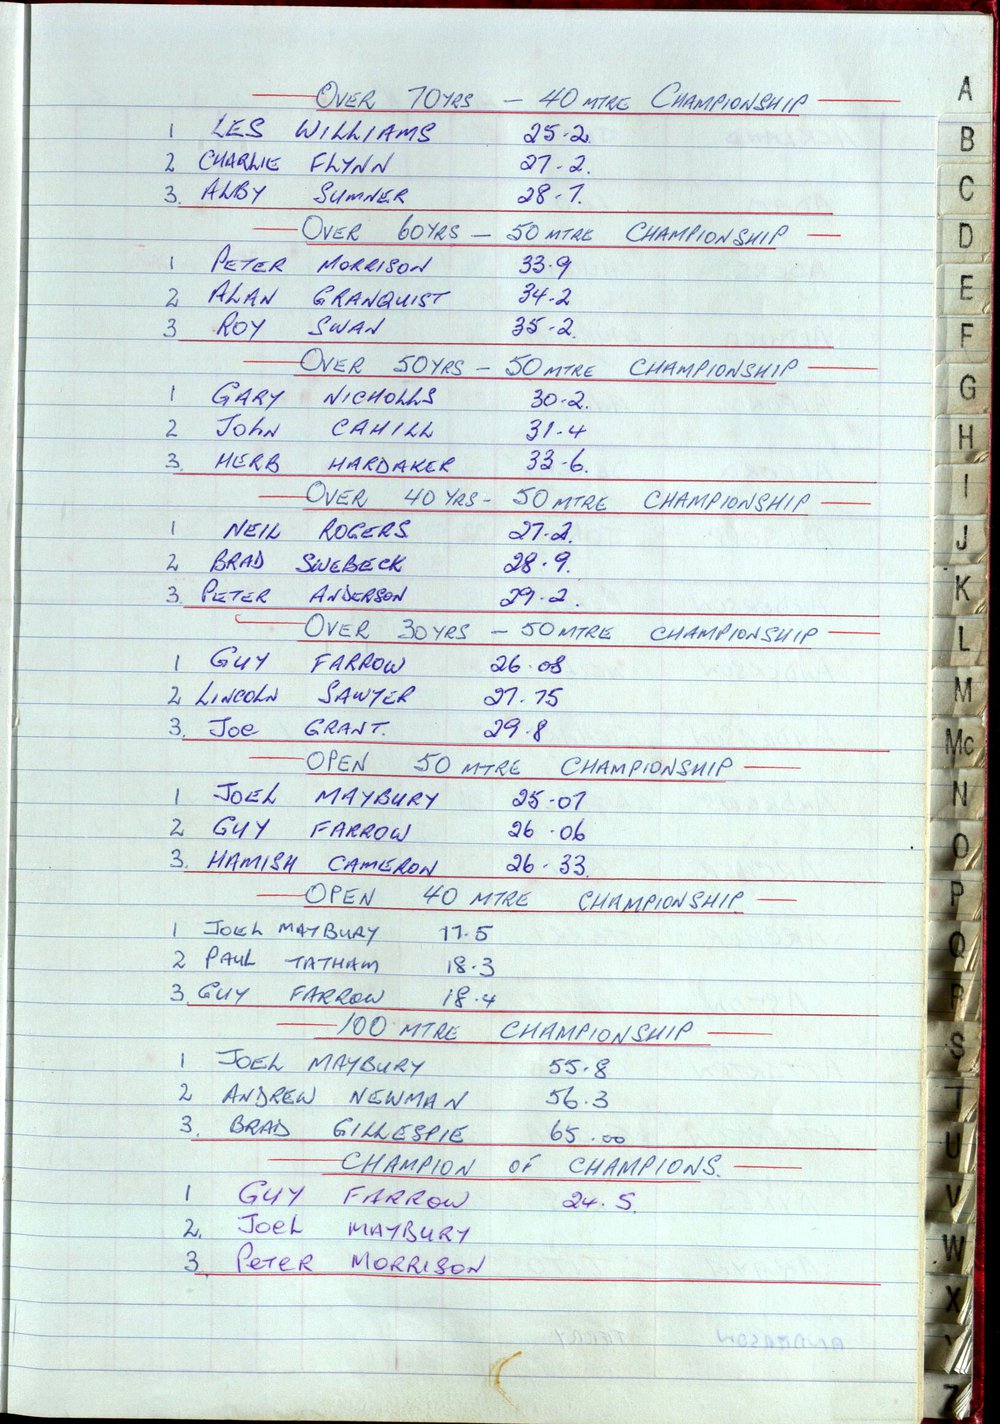 OVER 70YRS — 40 MTRE CHAMPIONSHIP
1 LES WILLIAMS 25.2.
2 CHARLIE FLYNN 27.2.
3. ALBY SUMNER 28.7.
OVER 60YRS — 50 MTRE CHAMPIONSHIP
1 PETER MORRISON 33.9
2 ALAN GRANQUIST 34.2
3 ROY SWAN 35.2.
OVER 50YRS — 50 MTRE CHAMPIONSHIP
1 GARY NICHOLLS 30.2.
2 JOHN CAHILL 31.4
3. HERB HARDAKER 33.6.
OVER 40YRS - 50 MTRE CHAMPIONSHIP
1 NEIL ROGERS 27.2.
2 BRAD SWEBECK 28.9.
3 PETER ANDERSON 29.2.
OVER 30YRS — 50 MTRE CHAMPIONSHIP
1 GUY FARROW 26.08
2 LINCOLN SAWYER 27.75
3. JOE GRANT. 29.8
OPEN 50 MTRE CHAMPIONSHIP
1 JOEL MAYBURY 25.07
2 GUY FARROW 26.06
3. HAMISH CAMERON 26.33.
OPEN 40 MTRE CHAMPIONSHIP
1 JOEL MAYBURY 17.5
2 PAUL TATHAM 18.3
3 GUY FARROW 18.4
100 MTRE CHAMPIONSHIP
1 JOEL MAYBURY 55.8
2 ANDREW NEWMAN 56.3
3. BRAD GILLESPIE 65.00
CHAMPION OF CHAMPIONS.
1 GUY FARROW 24.5.
2. JOEL MAYBURY
3. PETER MORRISON
A
B
C
D
E
F
G
H
I
J
K
L
M
Mc
N
O
P
Q
R
S
T
U
V
W
X
Y
Z